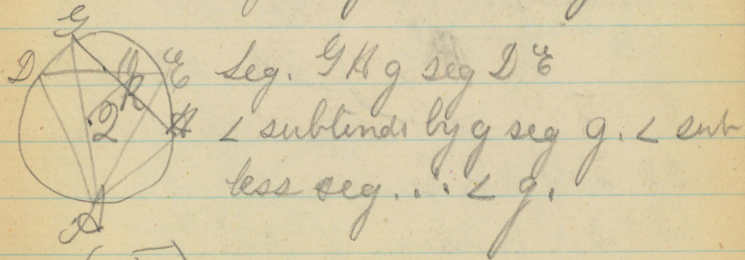 G
D K E Seg. GH g seg DE
R
2 H < subtends by g seg g. < sub
less seg. ∴ < g.
A